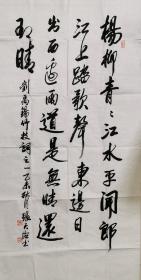 楊柳青青江水平聞郎
江上踏歌聲東邊日
出西邊雨道是無晴還
有晴
劉禹錫竹枝詞之一